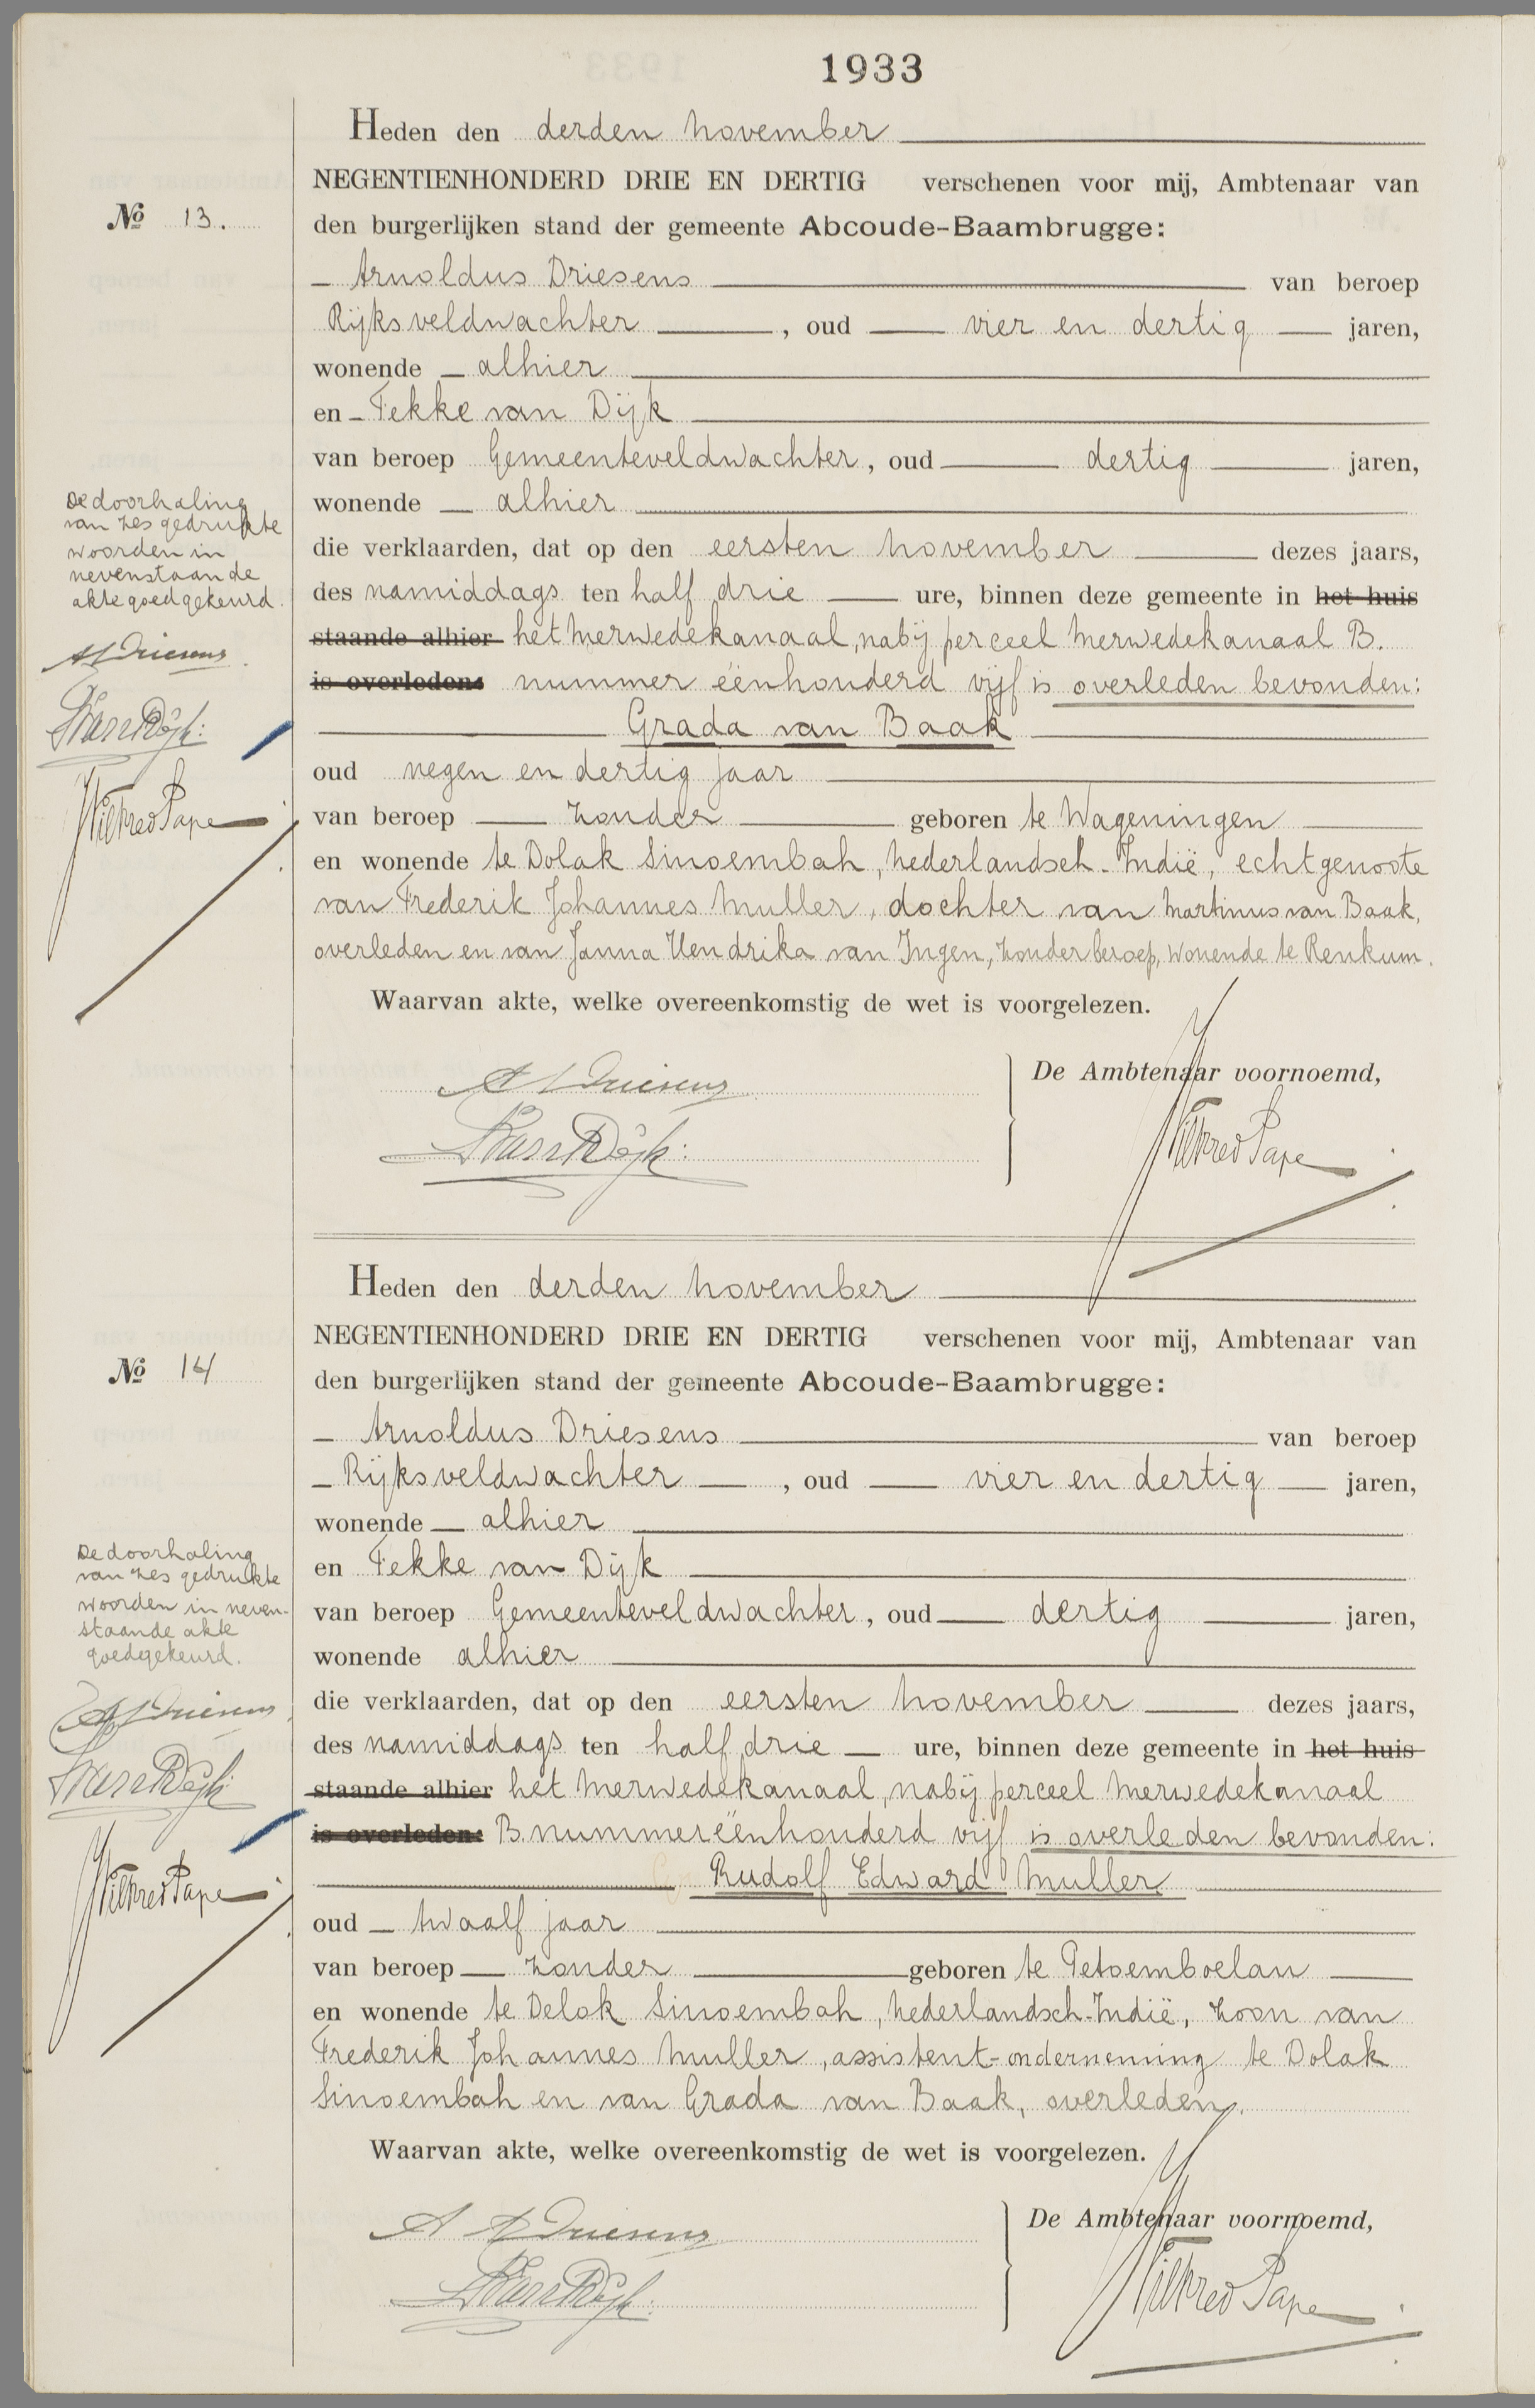 1933
Heden den derden November
NEGENTIENHONDERD DRIE EN DERTIG verschenen voor mij, Ambtenaar van
No 13.
den burgerlijken stand der gemeente Abcoude-Baambrugge:
Arnoldus Driesens van beroep
Rijksveldwachter, oud vier en dertig jaren,
wonende alhier
en Fekke van Dijk
van beroep Gemeenteveldwachter, oud dertig jaren,
wonende alhier
De doorhaling
van zes gedrukte
woorden in
nevenstaande
akte goedgekeurd.
A Driesens
F van Dijk
Wilfred Pape
die verklaarden, dat op den eersten November dezes jaars,
des namiddags ten half drie ure, binnen deze gemeente in het huis
staande alhier het Merwedekanaal, nabij perceel Merwedekanaal B.
is overleden: nummer éénhonderd vijf is overleden bevonden:
Grada van Baak
oud negen en dertig jaar
van beroep zonder geboren te Wageningen
en wonende te Dolak Sinoembah, Nederlandsch-Indië, echtgenoote
van Frederik Johannes Muller, dochter van Martinus van Baak,
overleden en van Janna Hendrika van Ingen, zonder beroep, wonende te Renkum.
Waarvan akte, welke overeenkomstig de wet is voorgelezen.
De Ambtenaar voornoemd,
A Driesens
F van Dijk
Wilfred Pape
Heden den derden November
NEGENTIENHONDERD DRIE EN DERTIG verschenen voor mij, Ambtenaar van
No 14
den burgerlijken stand der gemeente Abcoude-Baambrugge:
Arnoldus Driesens van beroep
Rijksveldwachter, oud vier en dertig jaren,
wonende alhier
en Fekke van Dijk
van beroep Gemeenteveldwachter, oud dertig jaren,
wonende alhier
De doorhaling
van zes gedrukte
woorden in neven-
staande akte
goedgekeurd.
A Driesens
F van Dijk
Wilfred Pape
die verklaarden, dat op den eersten November dezes jaars,
des namiddags ten half drie ure, binnen deze gemeente in het huis
staande alhier het Merwedekanaal, nabij perceel Merwedekanaal
is overleden: B nummer éénhonderd vijf is overleden bevonden:
Rudolf Edward Muller
oud twaalf jaar
van beroep zonder geboren te Petoemboelan
en wonende te Delok Sinoembah, Nederlandsch-Indië, zoon van
Frederik Johannes Muller, assistent-onderneming te Dolak
Sinoembah en van Grada van Baak, overleden.
Waarvan akte, welke overeenkomstig de wet is voorgelezen.
De Ambtenaar voornoemd,
A Driesens
F van Dijk
Wilfred Pape